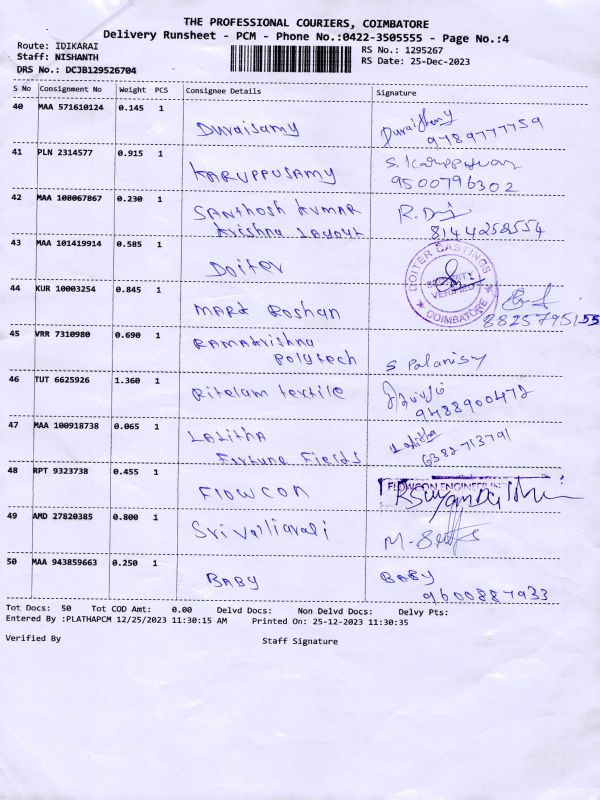 THE PROFESSIONAL COURIERS, COIMBATORE
Delivery Runsheet - PCM - Phone No.:0422-3505555 - Page No.:4
Route: IDIKARAI
RS No.: 1295267
Staff: NISHANTH
RS Date: 25-Dec-2023
DRS No.: DCJB129526704
S No Consignment No Weight PCS Consignee Details Signature
40 MAA 571610124 0.145 1 Duraisamy Duraisamy
9789777759
41 PLN 2314577 0.915 1 KARUPPUSAMY
9500796302
42 MAA 108067867 0.230 1 SANTHOSH KUMAR
Krishna Layout 8144258554
43 MAA 101419914 0.585 1 Doiter
ROITER CASTINGS
SECURITY
VERIFIED
COIMBATORE
44 KUR 10003254 0.845 1 MARK Roshan
8825795155
45 VRR 7310980 0.690 1 RAMAKrishna
Polytech S Palanisy
46 TUT 6625926 1.360 1 Ritelam textile
9488900472
47 MAA 100918738 0.065 1 LALITHA Lalitha
Fortune Fields 6382713791
48 RPT 9323738 0.455 1 Flowcon FLOWCON ENGINEER
49 AMD 27820385 0.800 1
50 MAA 943859663 0.250 1 BABY BABY
9600887933
Tot Docs: 50 Tot COD Amt: 0.00 Delvd Docs: Non Delvd Docs: Delvy Pts:
Entered By :PLATHAPCM 12/25/2023 11:30:15 AM Printed On: 25-12-2023 11:30:35
Verified By Staff Signature